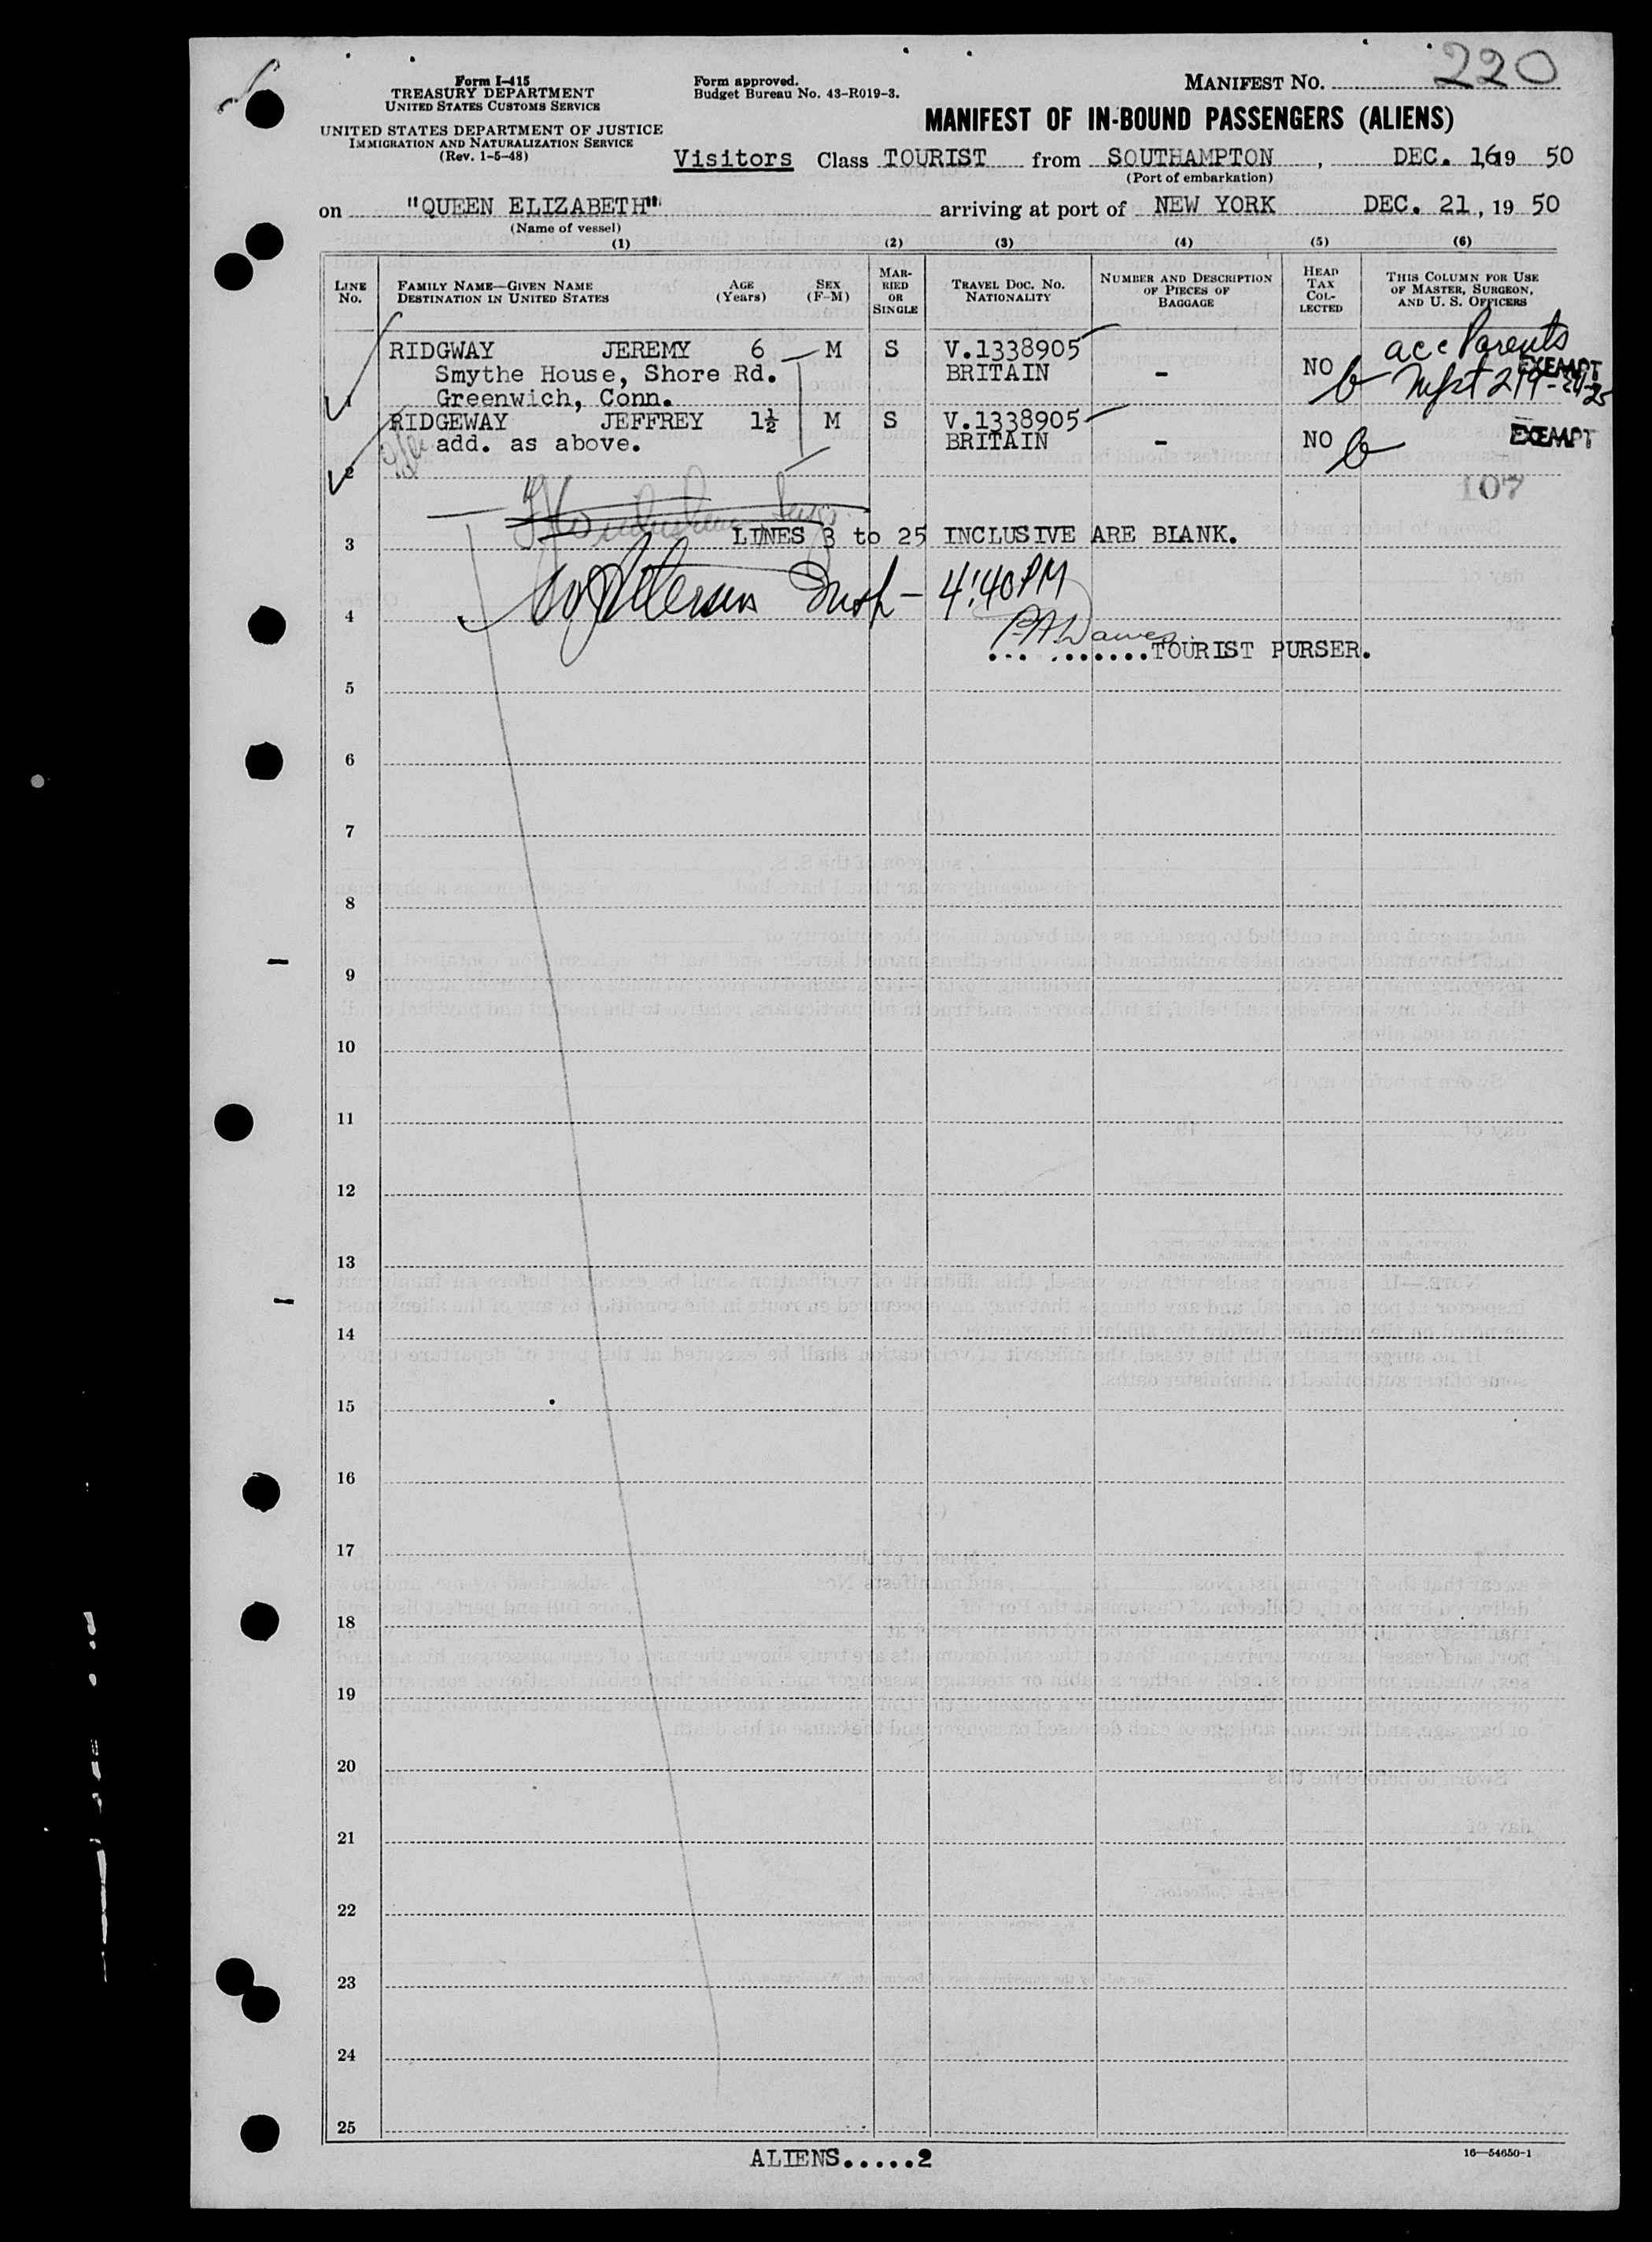 220
Form I-415
TREASURY DEPARTMENT
UNITED STATES CUSTOMS SERVICE
UNITED STATES DEPARTMENT OF JUSTICE
IMMIGRATION AND NATURALIZATION SERVICE
(Rev. 1-5-48)
Form approved.
Budget Bureau No. 43-R019-3.
MANIFEST NO.
MANIFEST OF IN-BOUND PASSENGERS (ALIENS)
Visitors Class TOURIST from SOUTHAMPTON, DEC. 16 19 50
(Port of embarkation)
on "QUEEN ELIZABETH" arriving at port of NEW YORK DEC. 21, 19 50
(Name of vessel)
(1) (2) (3) (4) (5) (6)
LINE No. FAMILY NAME—GIVEN NAME DESTINATION IN UNITED STATES AGE (Years) SEX (F-M) MARRIED OR SINGLE TRAVEL DOC. NO. NATIONALITY NUMBER AND DESCRIPTION OF PIECES OF BAGGAGE HEAD TAX COLLECTED THIS COLUMN FOR USE OF MASTER, SURGEON, AND U. S. OFFICERS
RIDGWAY JEREMY 6 M S V.1338905 acc Parents
Smythe House, Shore Rd. BRITAIN - NO EXEMPT
1 Greenwich, Conn.
RIDGEWAY JEFFREY 1½ M S V.1338905
add. as above. BRITAIN - NO EXEMPT
2
107
3 LINES 3 to 25 INCLUSIVE ARE BLANK.
4 4:40 PM
...........TOURIST PURSER.
5
6
7
8
9
10
11
12
13
14
15
16
17
18
19
20
21
22
23
24
25
ALIENS.....2
16—54650-1